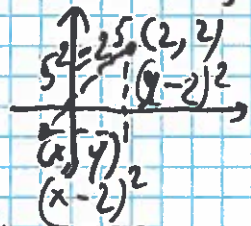 5² = 25 (2, 2)
(y - 2)²
(x, y)
(x - 2)²